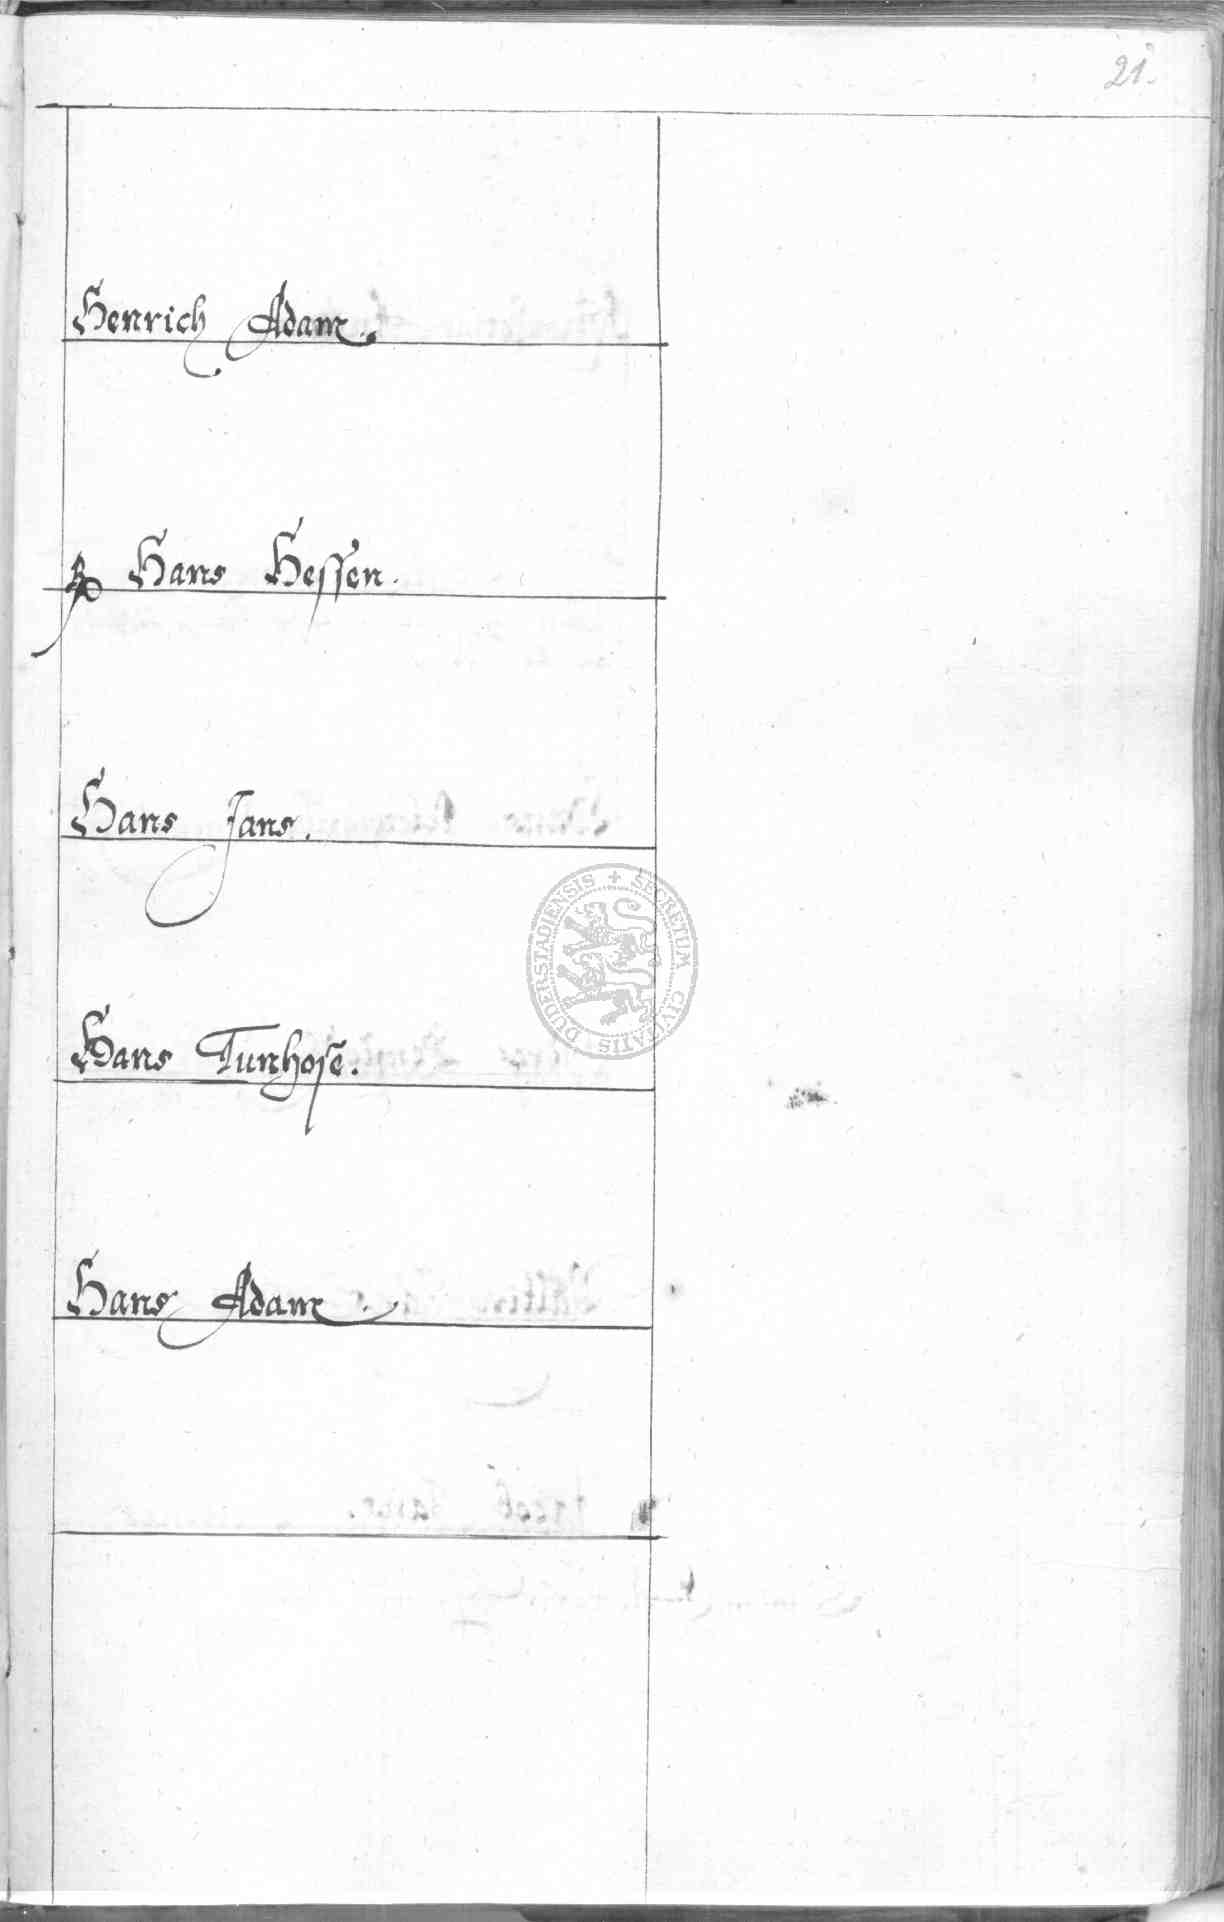 21.
Henrich Adam.
Hans Hessen.
Hans Jans.
SECRETUM CIVITATIS DUDERSTADIENSIS
Hans Tunhose.
Hans Adam.